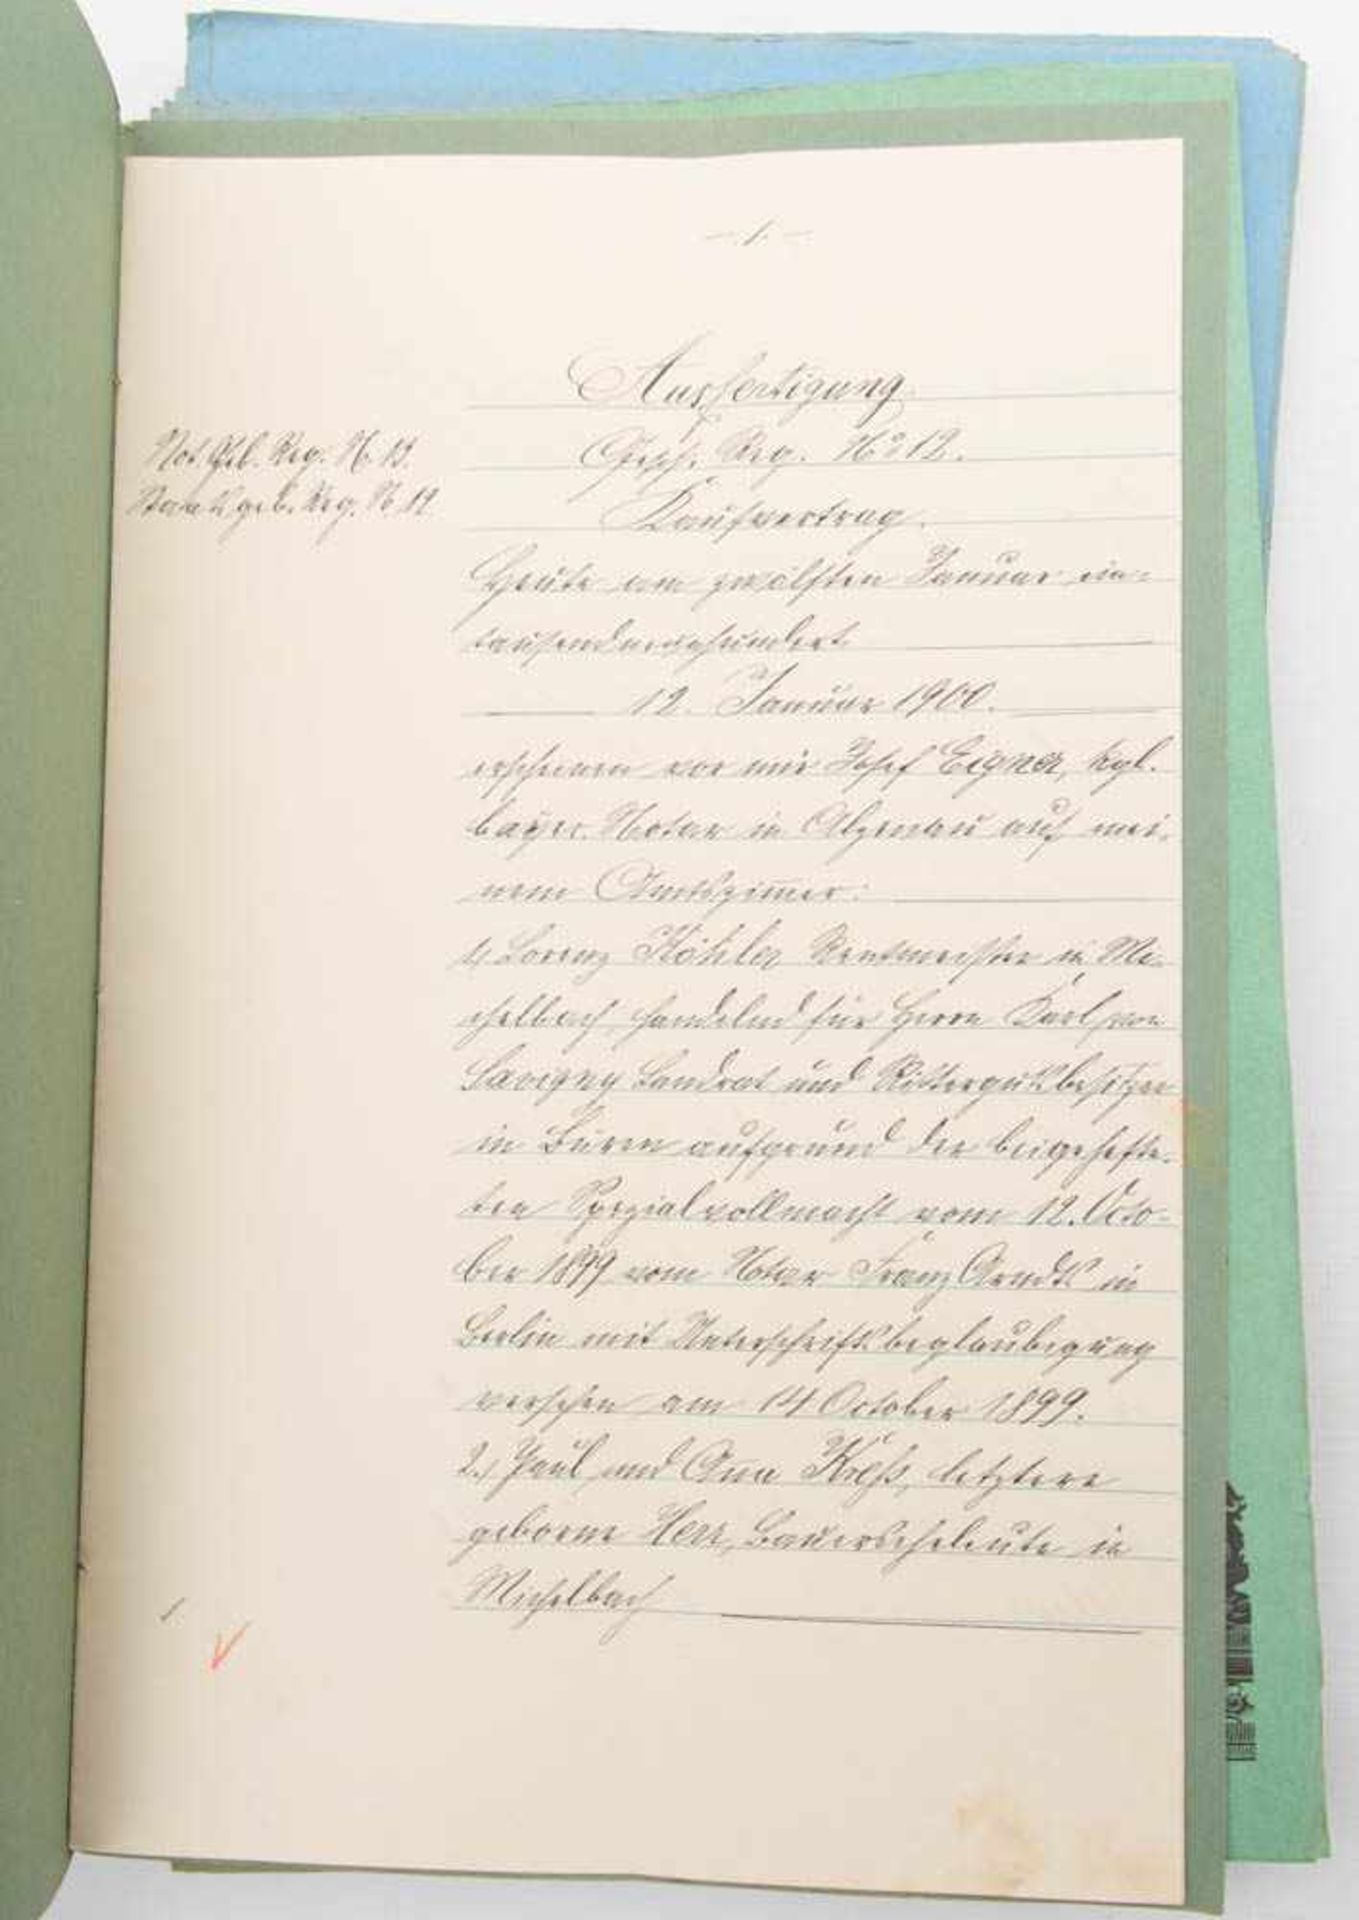 - 1. -
Ausfertigung
Gesch. Reg. No 12.
Not. Geb. Reg. N. 12.
Staatsgeb. Reg. N. 12
Kaufvertrag.
Heute am zwölften Januar ein-
tausendneunhundert
12. Januar 1900.
erschienen vor mir Josef Eigner, kgl.
bayer. Notar in Alzenau auf mei-
nem Amtszimmer:
1, Lorenz Köhler Rentmeister in Mi-
chelbach handelnd für Herrn Karl von
Savigny Landrat und Rittergutsbesitzer
in Büren aufgrund der beigehefte-
ten Spezialvollmacht vom 12. Octo-
ber 1899 vom Notar Franz Arndts in
Berlin mit Unterschriftsbeglaubigung
versehen am 14 October 1899.
2., Paul und Anna Kreß, letztere
geborene Herr, Bauerseheleute in
Michelbach